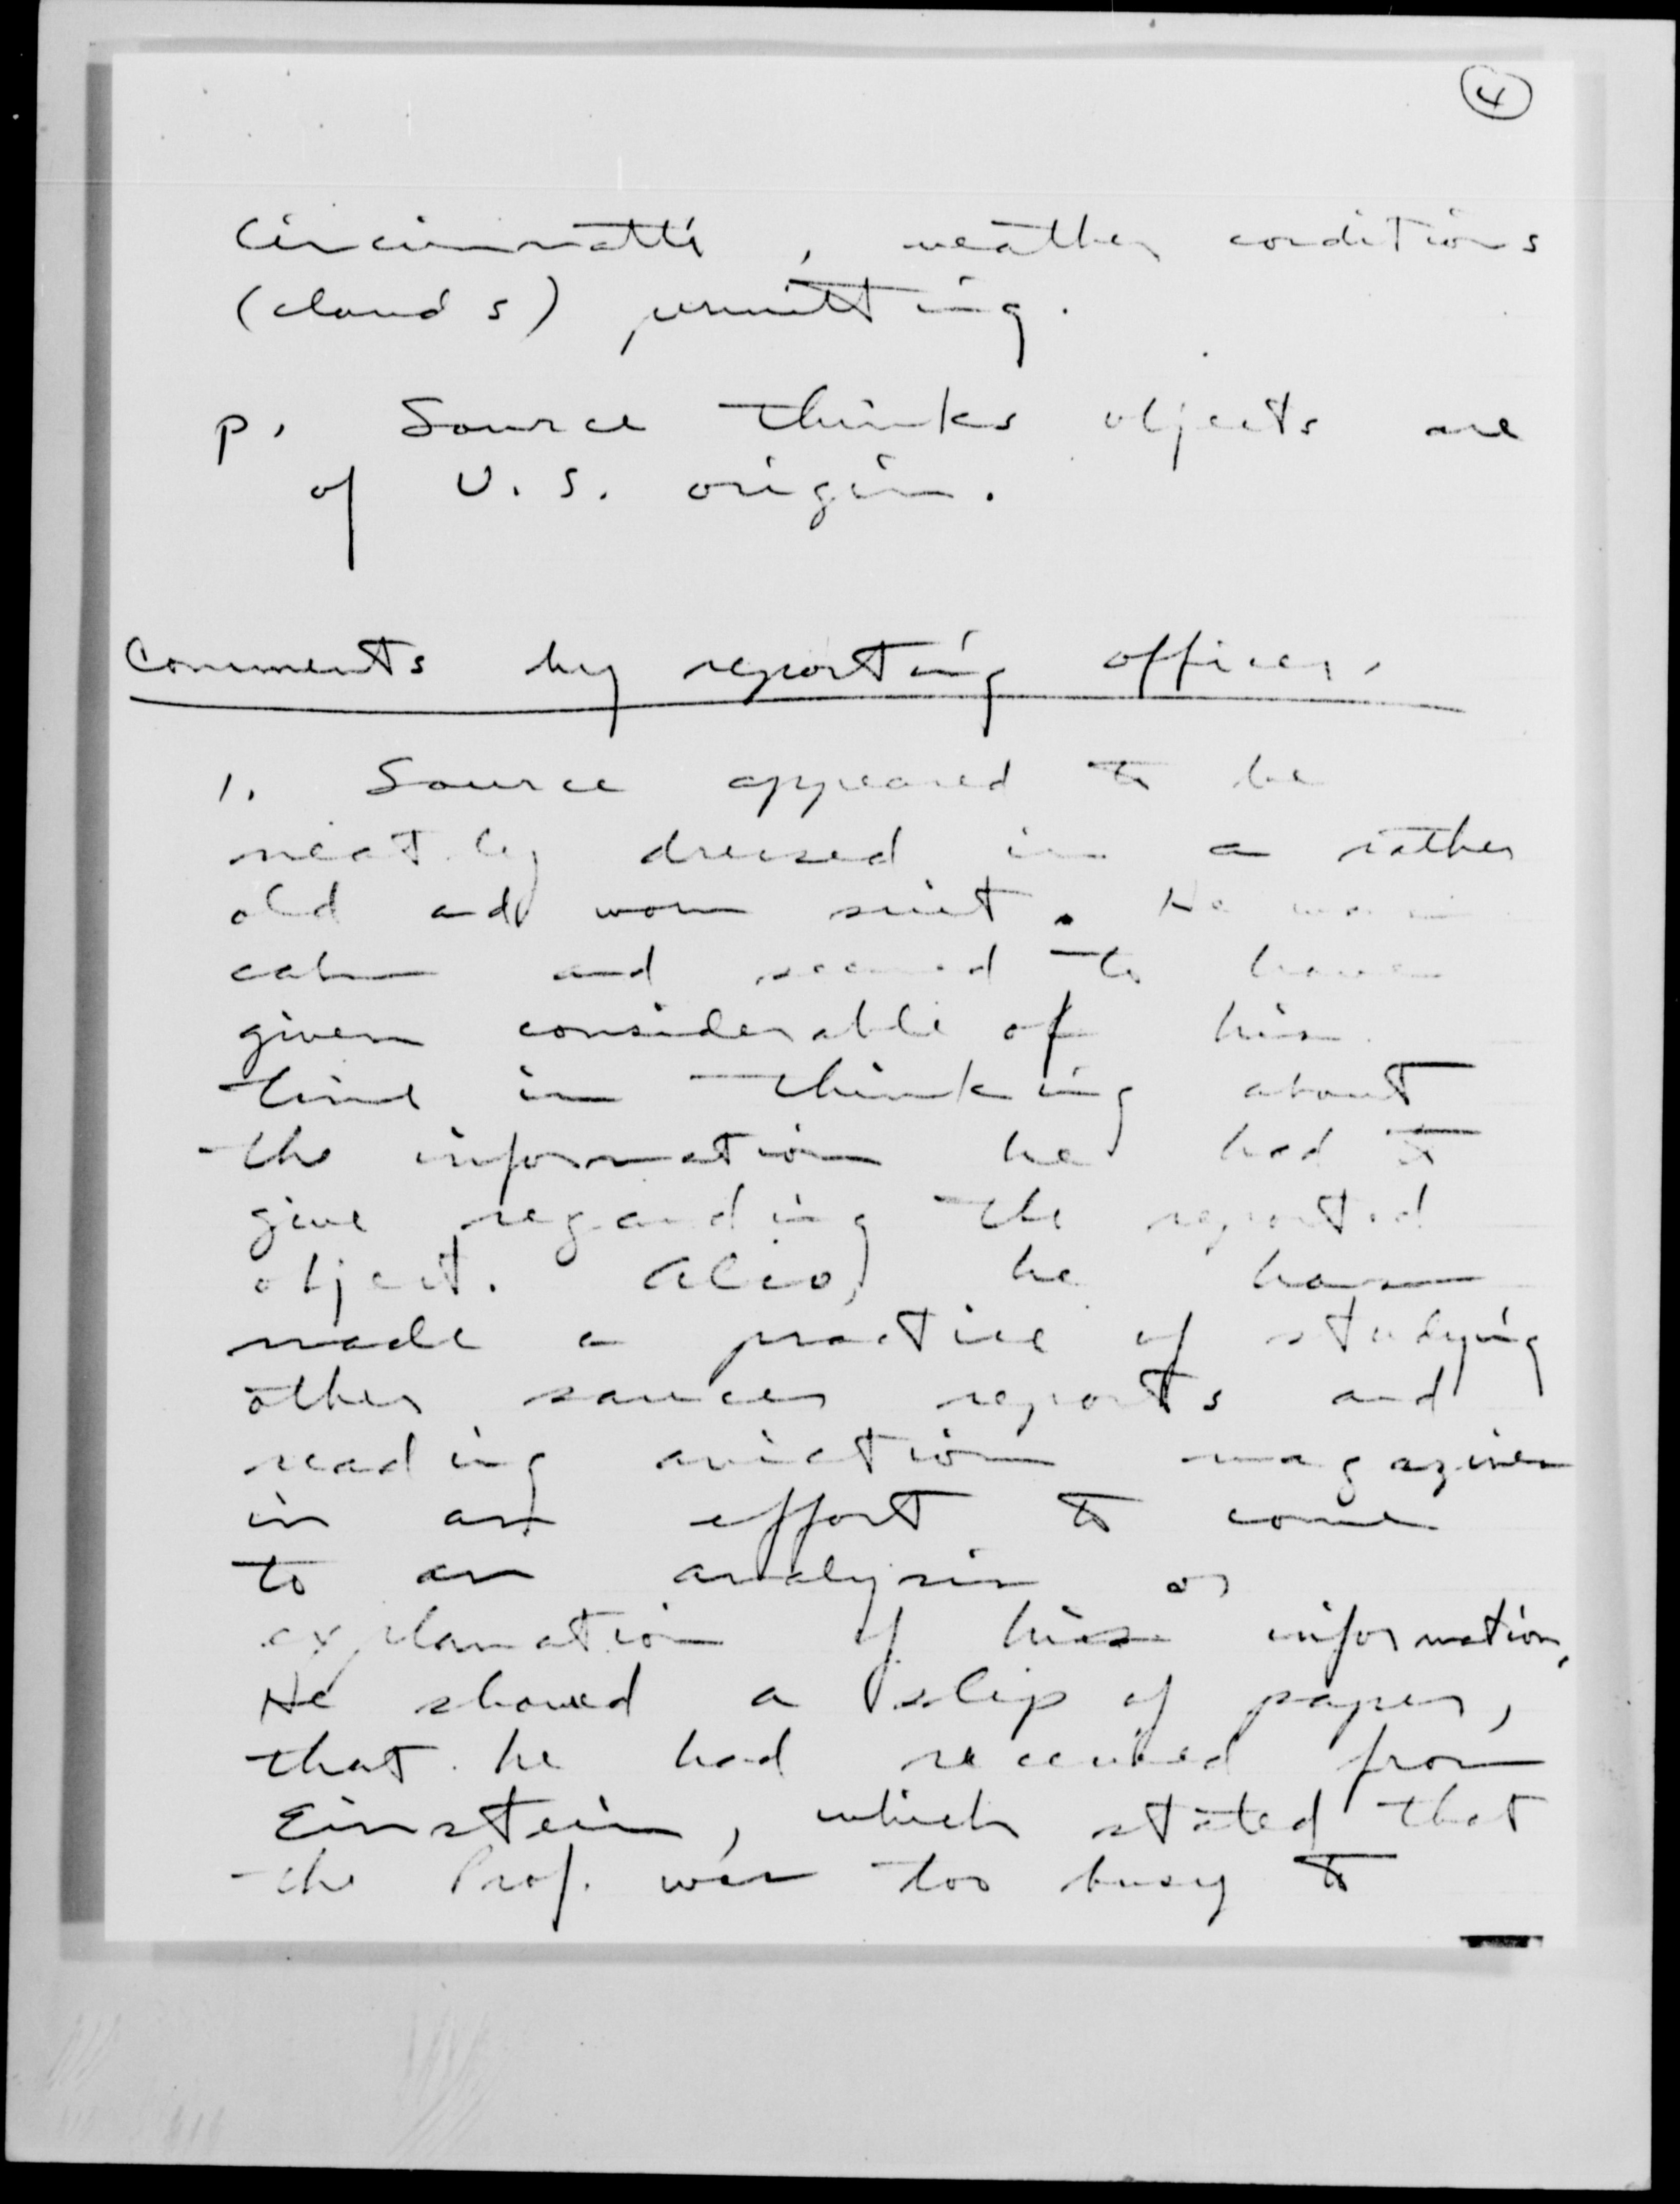 4
Cincinnatti, weather conditions
(clouds) permitting.
p. Source thinks objects are
of U.S. origin.
Comments by reporting officer.
1. Source appeared to be
neatly dressed in a rather
old and worn suit. He was
calm and seemed to have
given considerable of his
time in thinking about
the information he had to
give regarding the reported
object. Also, he has
made a practice of studying
other saucer reports and
reading aviation magazines
in an effort to come
to an analysis or
explanation of his information.
He showed a slip of paper,
that he had received from
Einstein, which stated that
the Prof. was too busy to